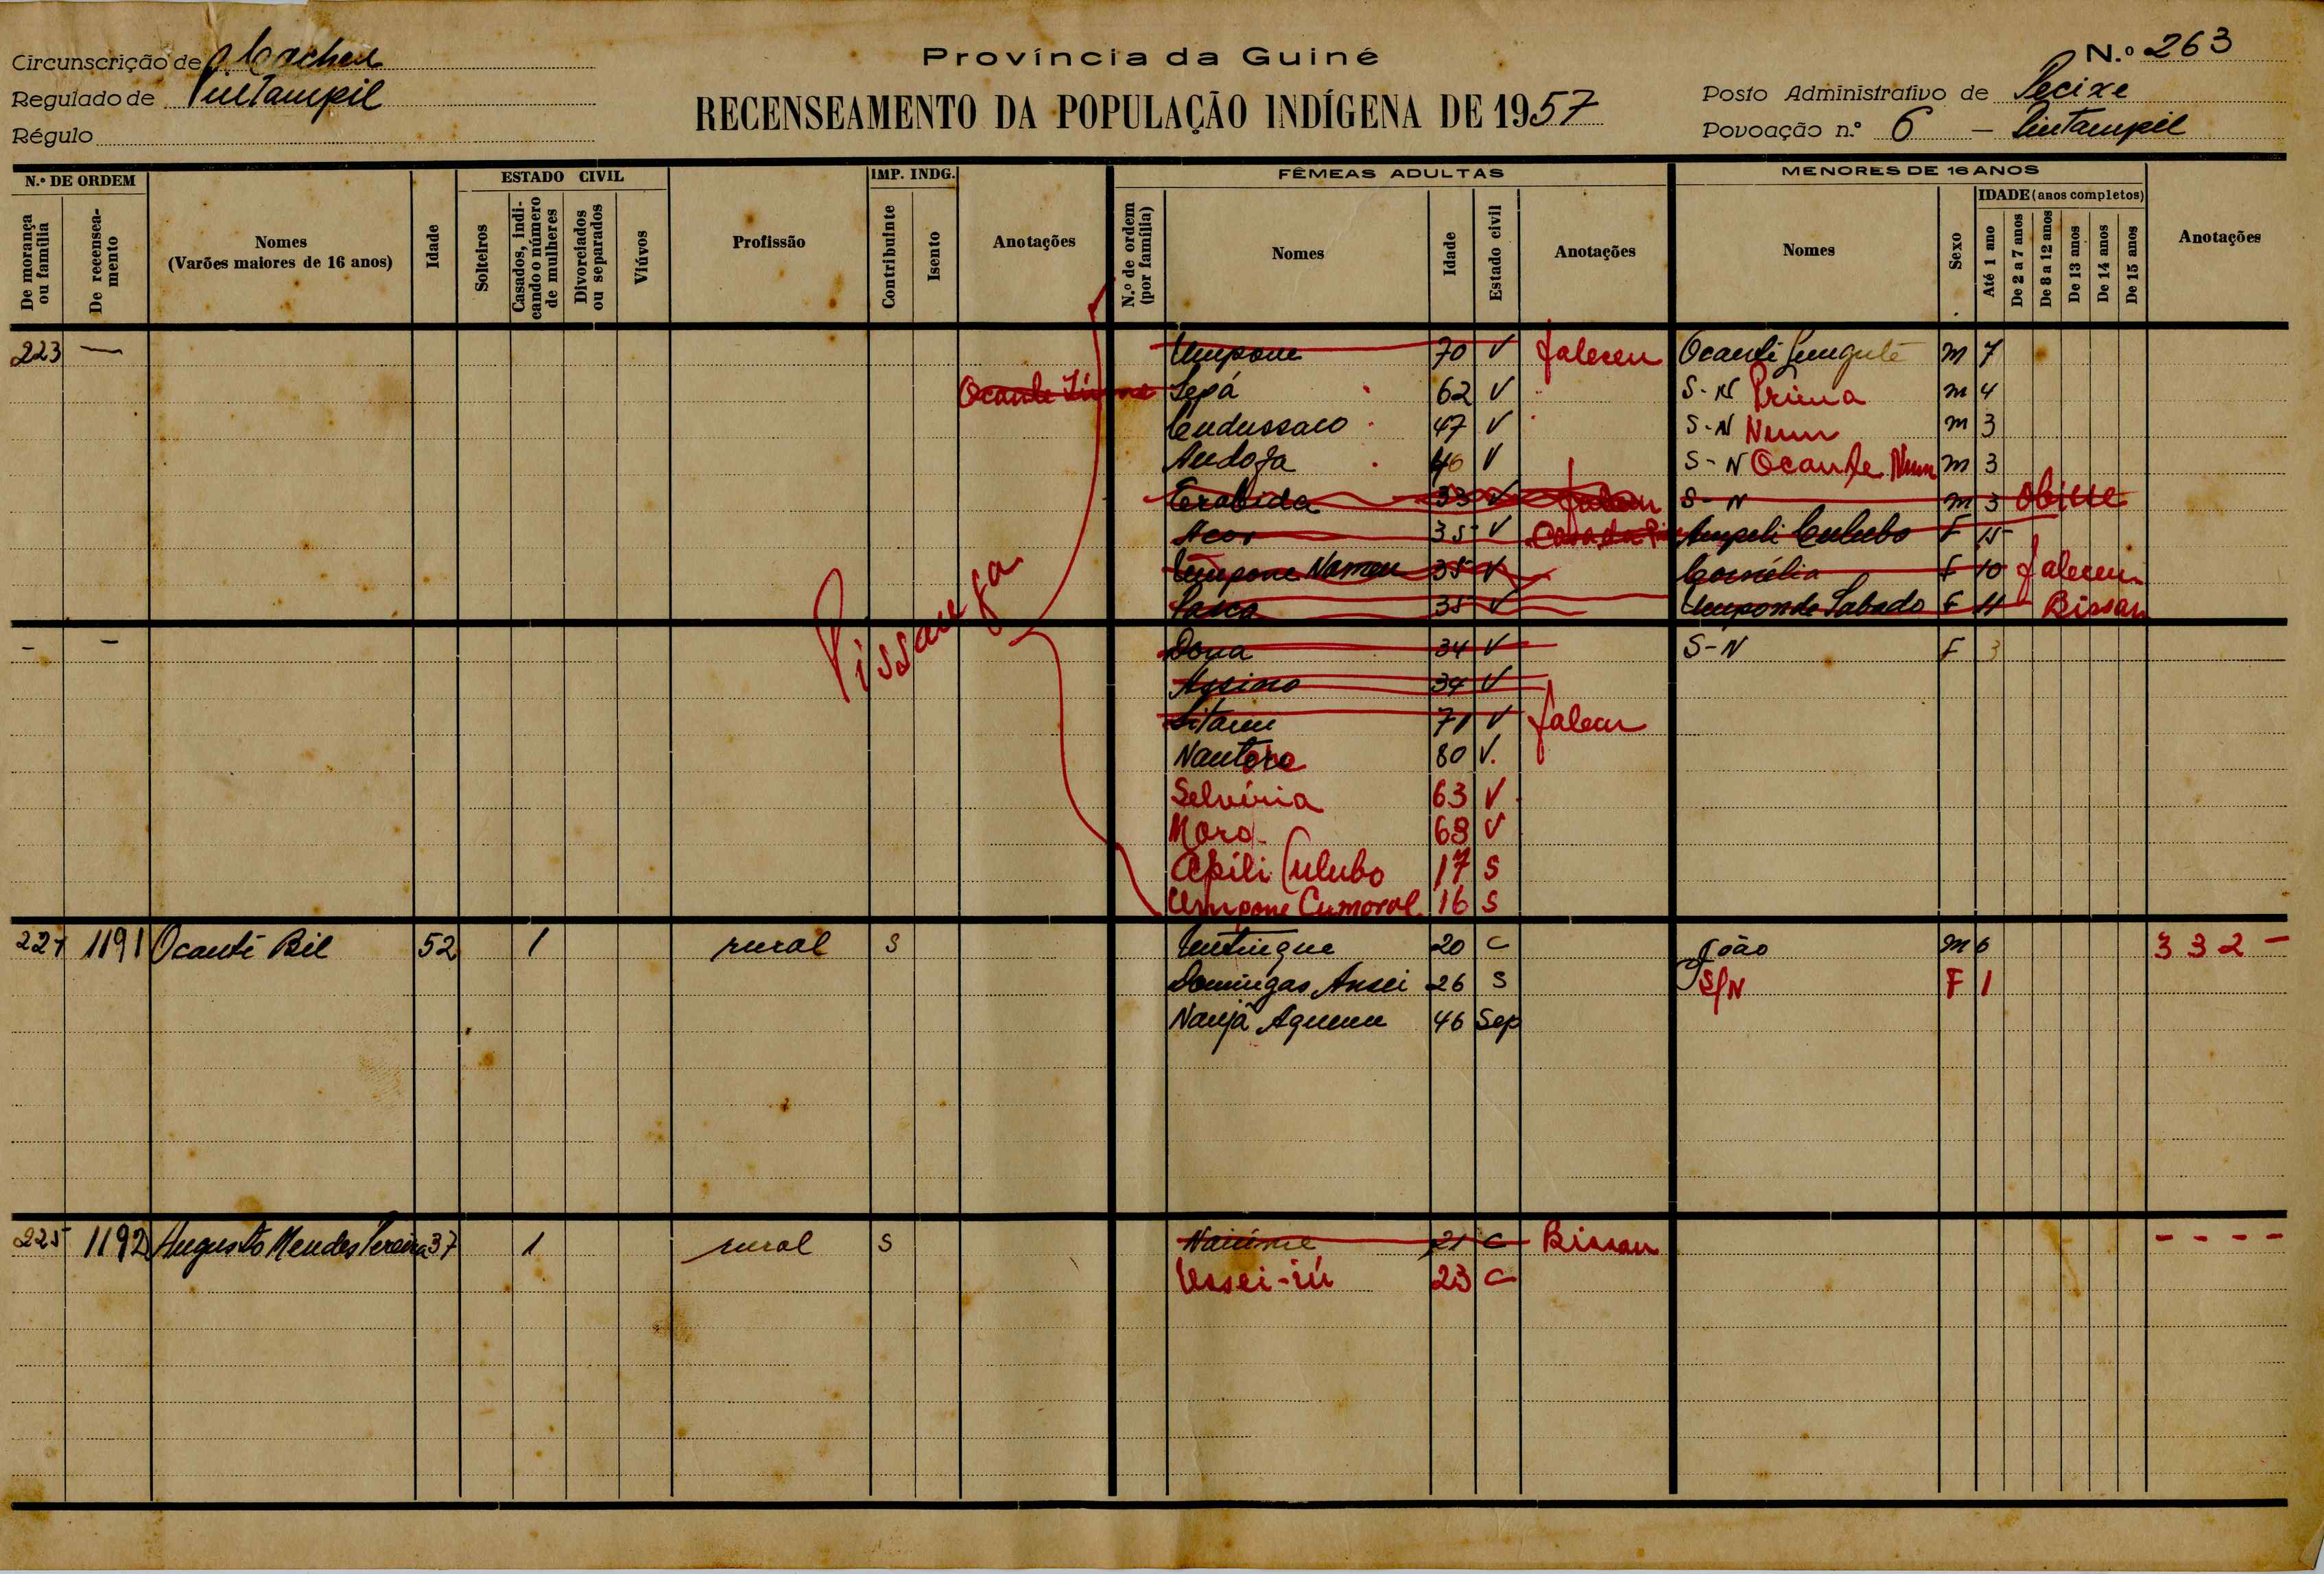 Circunscrição de Cacheu
Regulado de Pintampil
Régulo
Província da Guiné
RECENSEAMENTO DA POPULAÇÃO INDÍGENA DE 1957
N.º 263
Posto Administrativo de Pecixe
Povoação n.º 6 - Pintampil
N.º DE ORDEM
De morança ou família
De recenseamento
Nomes
(Varões maiores de 16 anos)
Idade
ESTADO CIVIL
Solteiros
Casados, indicando o número de mulheres
Divorciados ou separados
Viúvos
Profissão
IMP. INDG.
Contribuinte
Isento
Anotações
FÊMEAS ADULTAS
N.º de ordem (por família)
Nomes
Idade
Estado civil
Anotações
MENORES DE 16 ANOS
Nomes
Sexo
IDADE (anos completos)
Até 1 ano
De 2 a 7 anos
De 8 a 12 anos
De 13 anos
De 14 anos
De 15 anos
Anotações
223 — Umpone 70 V faleceu Ocanti m 7
Ocante Sepá 62 V S-N Prima m 4
47 V S-N Num m 3
Andofa 46 V S-N Ocante Num m 3
33 V S-N m 3
35 V Ampeli Culubo F 15
Umpone 35 V Cornélia F 10 faleceu
35 V Umponde Sabado F 11 Bissau
- - Dona 34 V S-N F 3
34 V
71 V faleceu
80 V.
Selvíria 63 V
Moro 68 V
Apili Culubo 17 S
Umpone Cumoral 16 S
224 1191 Ocanté Bil 52 1 rural S 20 C João m 6 332 -
Domingas Ansei 26 S S/N F 1
46 Sep
225 1192 Augusto Mendes Pereira 37 1 rural S 21 C Bissau - - - -
Ussei-iú 23 C